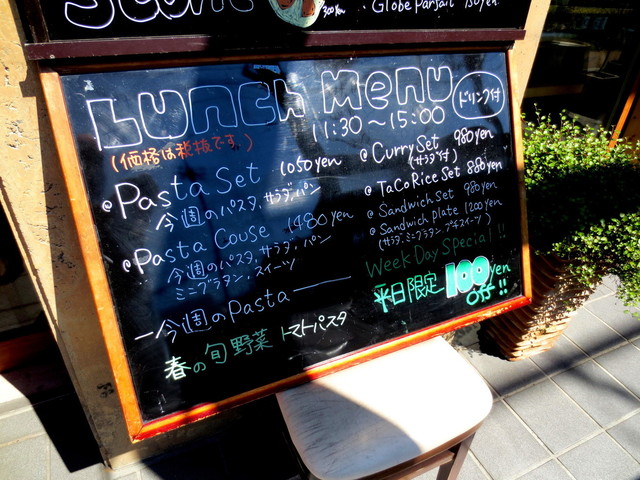 Globe Parfait 750yen.
LUNCH MENU
11:30〜15:00
ドリンク付
(価格は税抜です。)
@Pasta Set 1050yen
今週のパスタ、サラダ、パン
@Pasta Couse 1480yen
今週のパスタ、サラダ、パン
ミニグラタン、スイーツ
一今週のPasta
春の旬野菜 トマトパスタ
@Curry Set 980yen
(サラダ付)
@TaCo Rice Set 880yen
@Sandwich Set 980yen
@Sandwich Plate 1200yen
(サラダ、ミニグラタン、プチスイーツ)
Week Day Special!!
平日限定 100yen
OFF!!